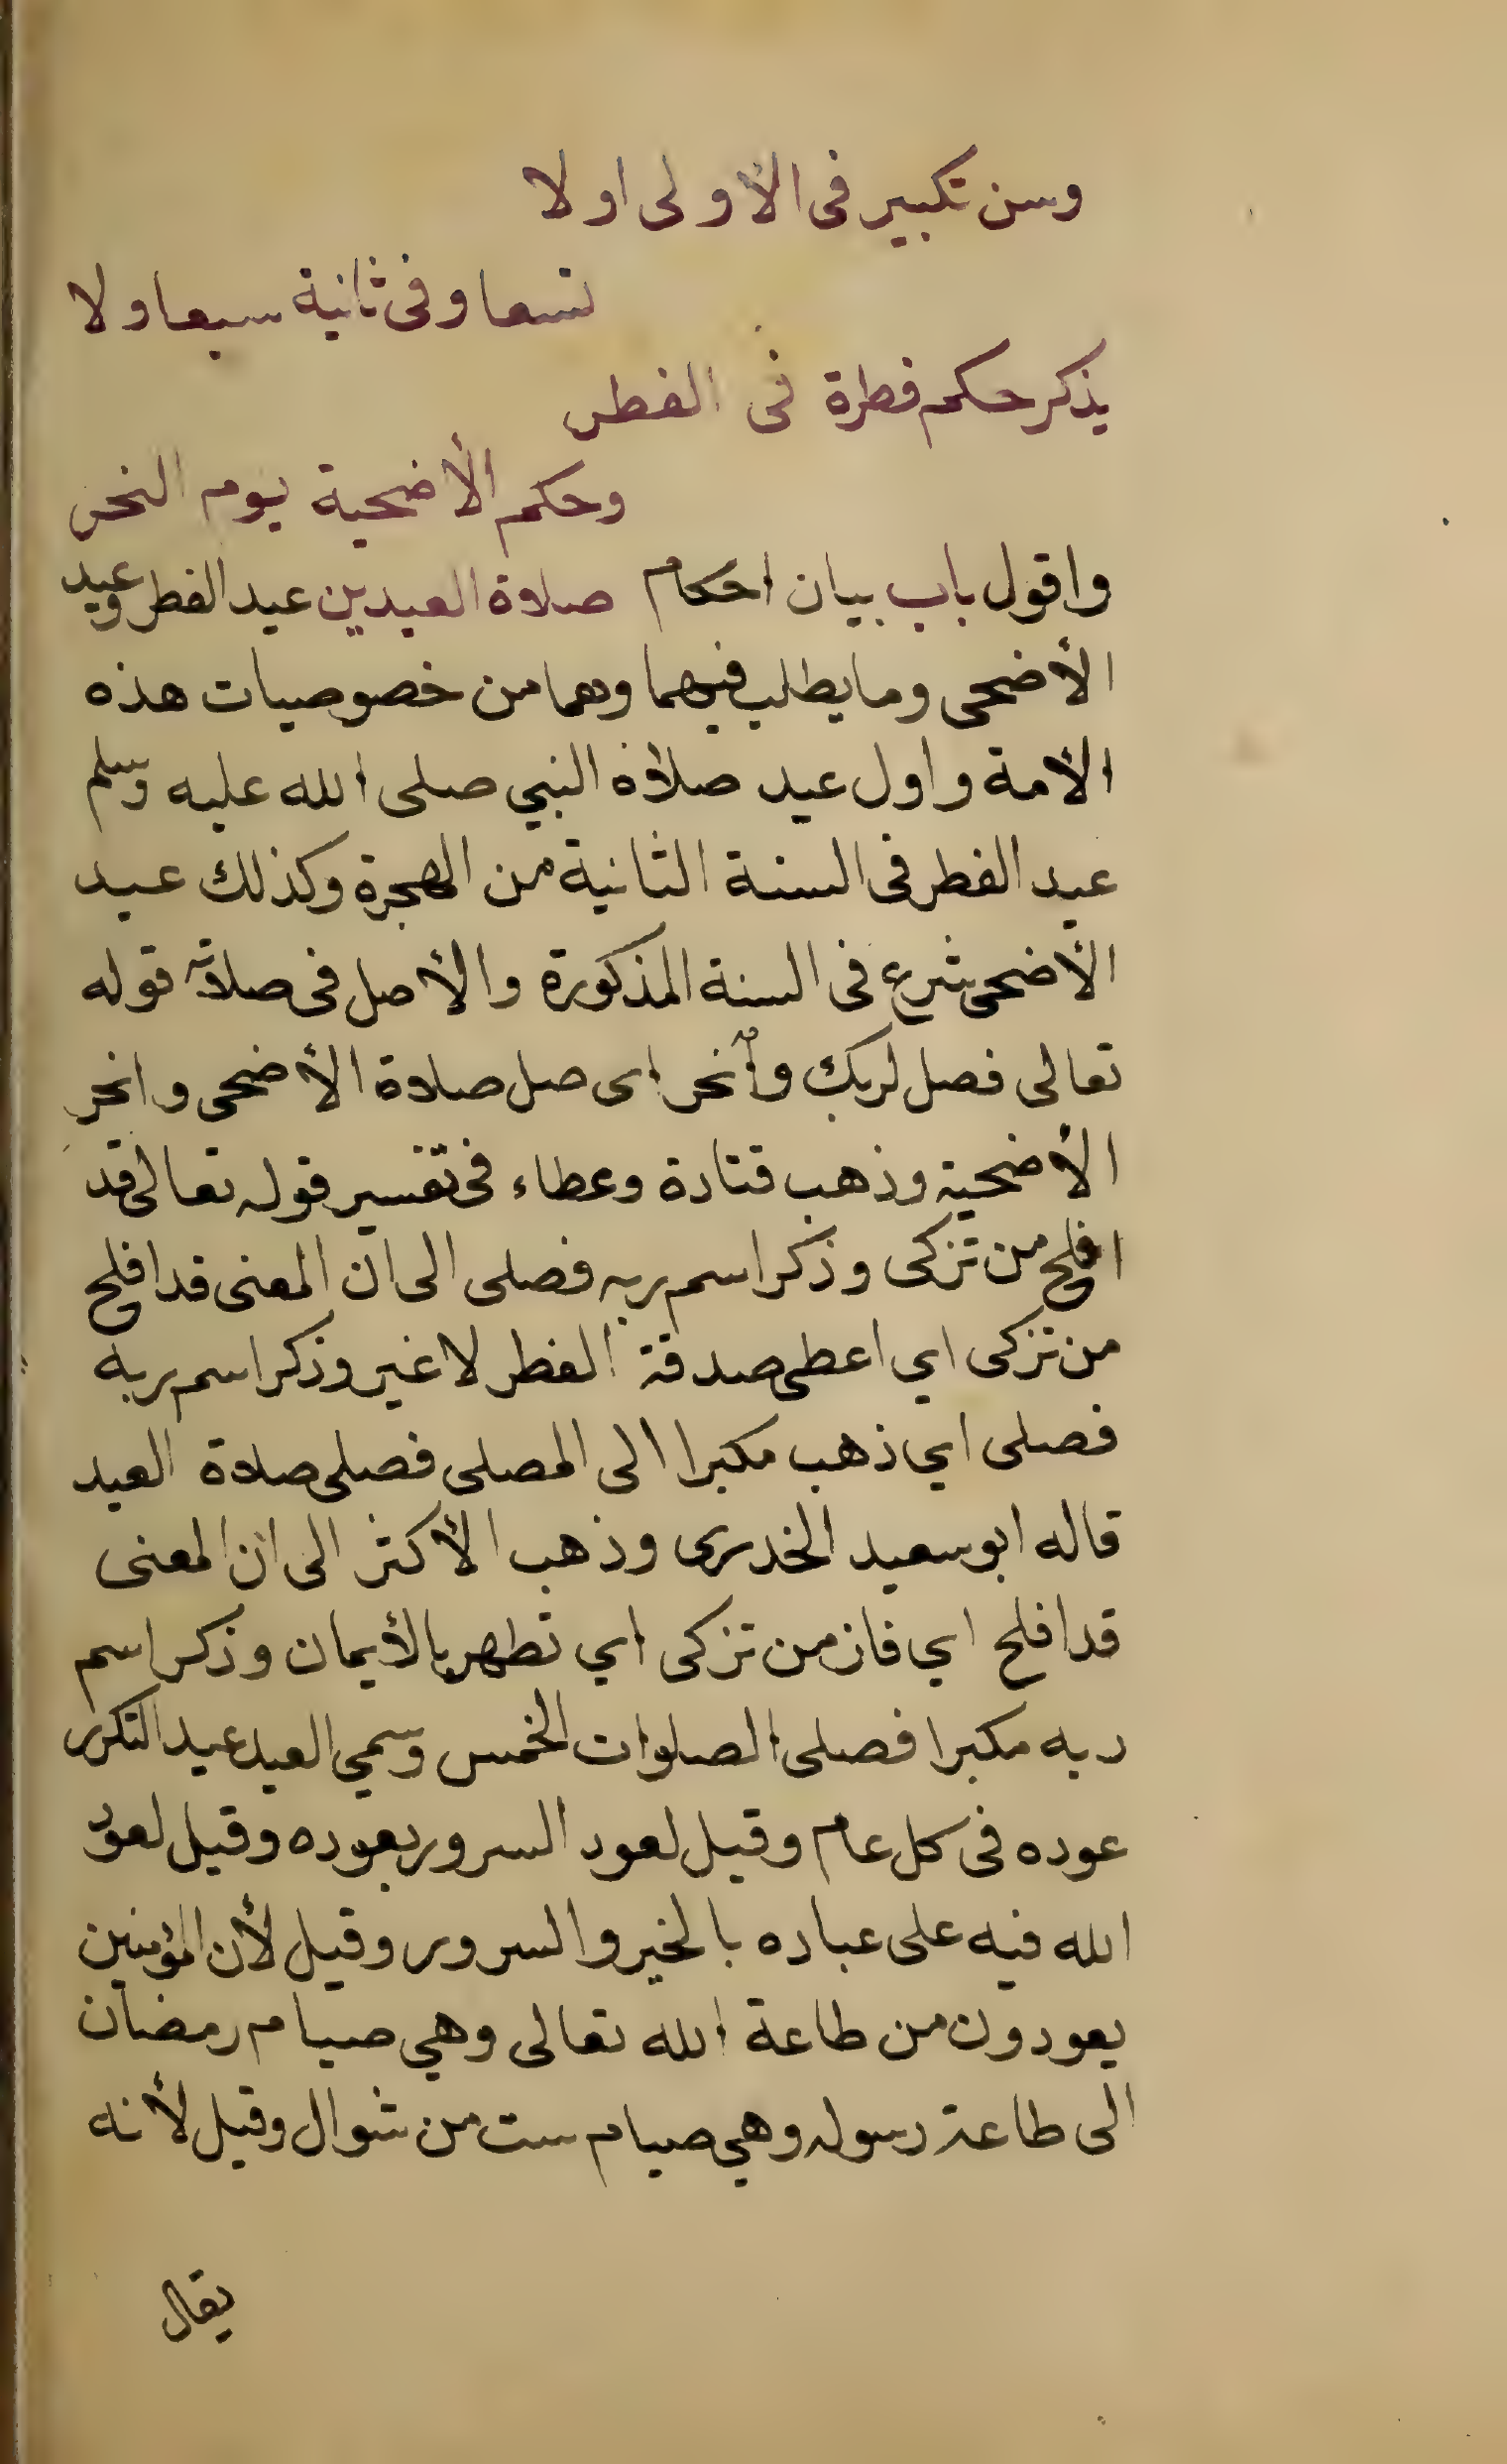 وسن تكبير فى الأولى اولا
تسعا وفى ثانية سبعا ولا
يذكر حكم فطرة فى الفطر
وحكم الأضحية يوم النحر
واقول باب بيان احكام صلاة العيدين عيد الفطر وعيد
الأضحى وما يطلب فيهما وهما من خصوصيات هذه
الأمة واول عيد صلاة النبي صلى الله عليه وسلم
عيد الفطر فى السنة الثانية من الهجرة وكذلك عيد
الأضحى شرع فى السنة المذكورة والأصل فى صلاته قوله
تعالى فصل لربك وأنحر اى صل صلاة الأضحى وانحر
الأضحية وذهب قتادة وعطاء فى تفسير قوله تعالى قد
افلح من تزكى وذكر اسم ربه فصلى الى ان المعنى قد افلح
من تزكى اي اعطى صدقة الفطر لا غير وذكر اسم ربه
فصلى اي ذهب مكبرا الى المصلى فصلى صلاة العيد
قاله ابو سعيد الخدرى وذهب الأكثر الى ان المعنى
قد افلح اي فاز من تزكى اي تطهر بالأيمان وذكر اسم
ربه مكبرا فصلى الصلوات الخمس وسمي العيد عيد التكرر
عوده فى كل عام وقيل لعود السرور بعوده وقيل لعود
الله فيه على عباده بالخير والسرور وقيل لأن المؤمنين
يعودون من طاعة الله تعالى وهي صيام رمضان
الى طاعة رسوله وهي صيام ست من شوال وقيل لأنه
يقال